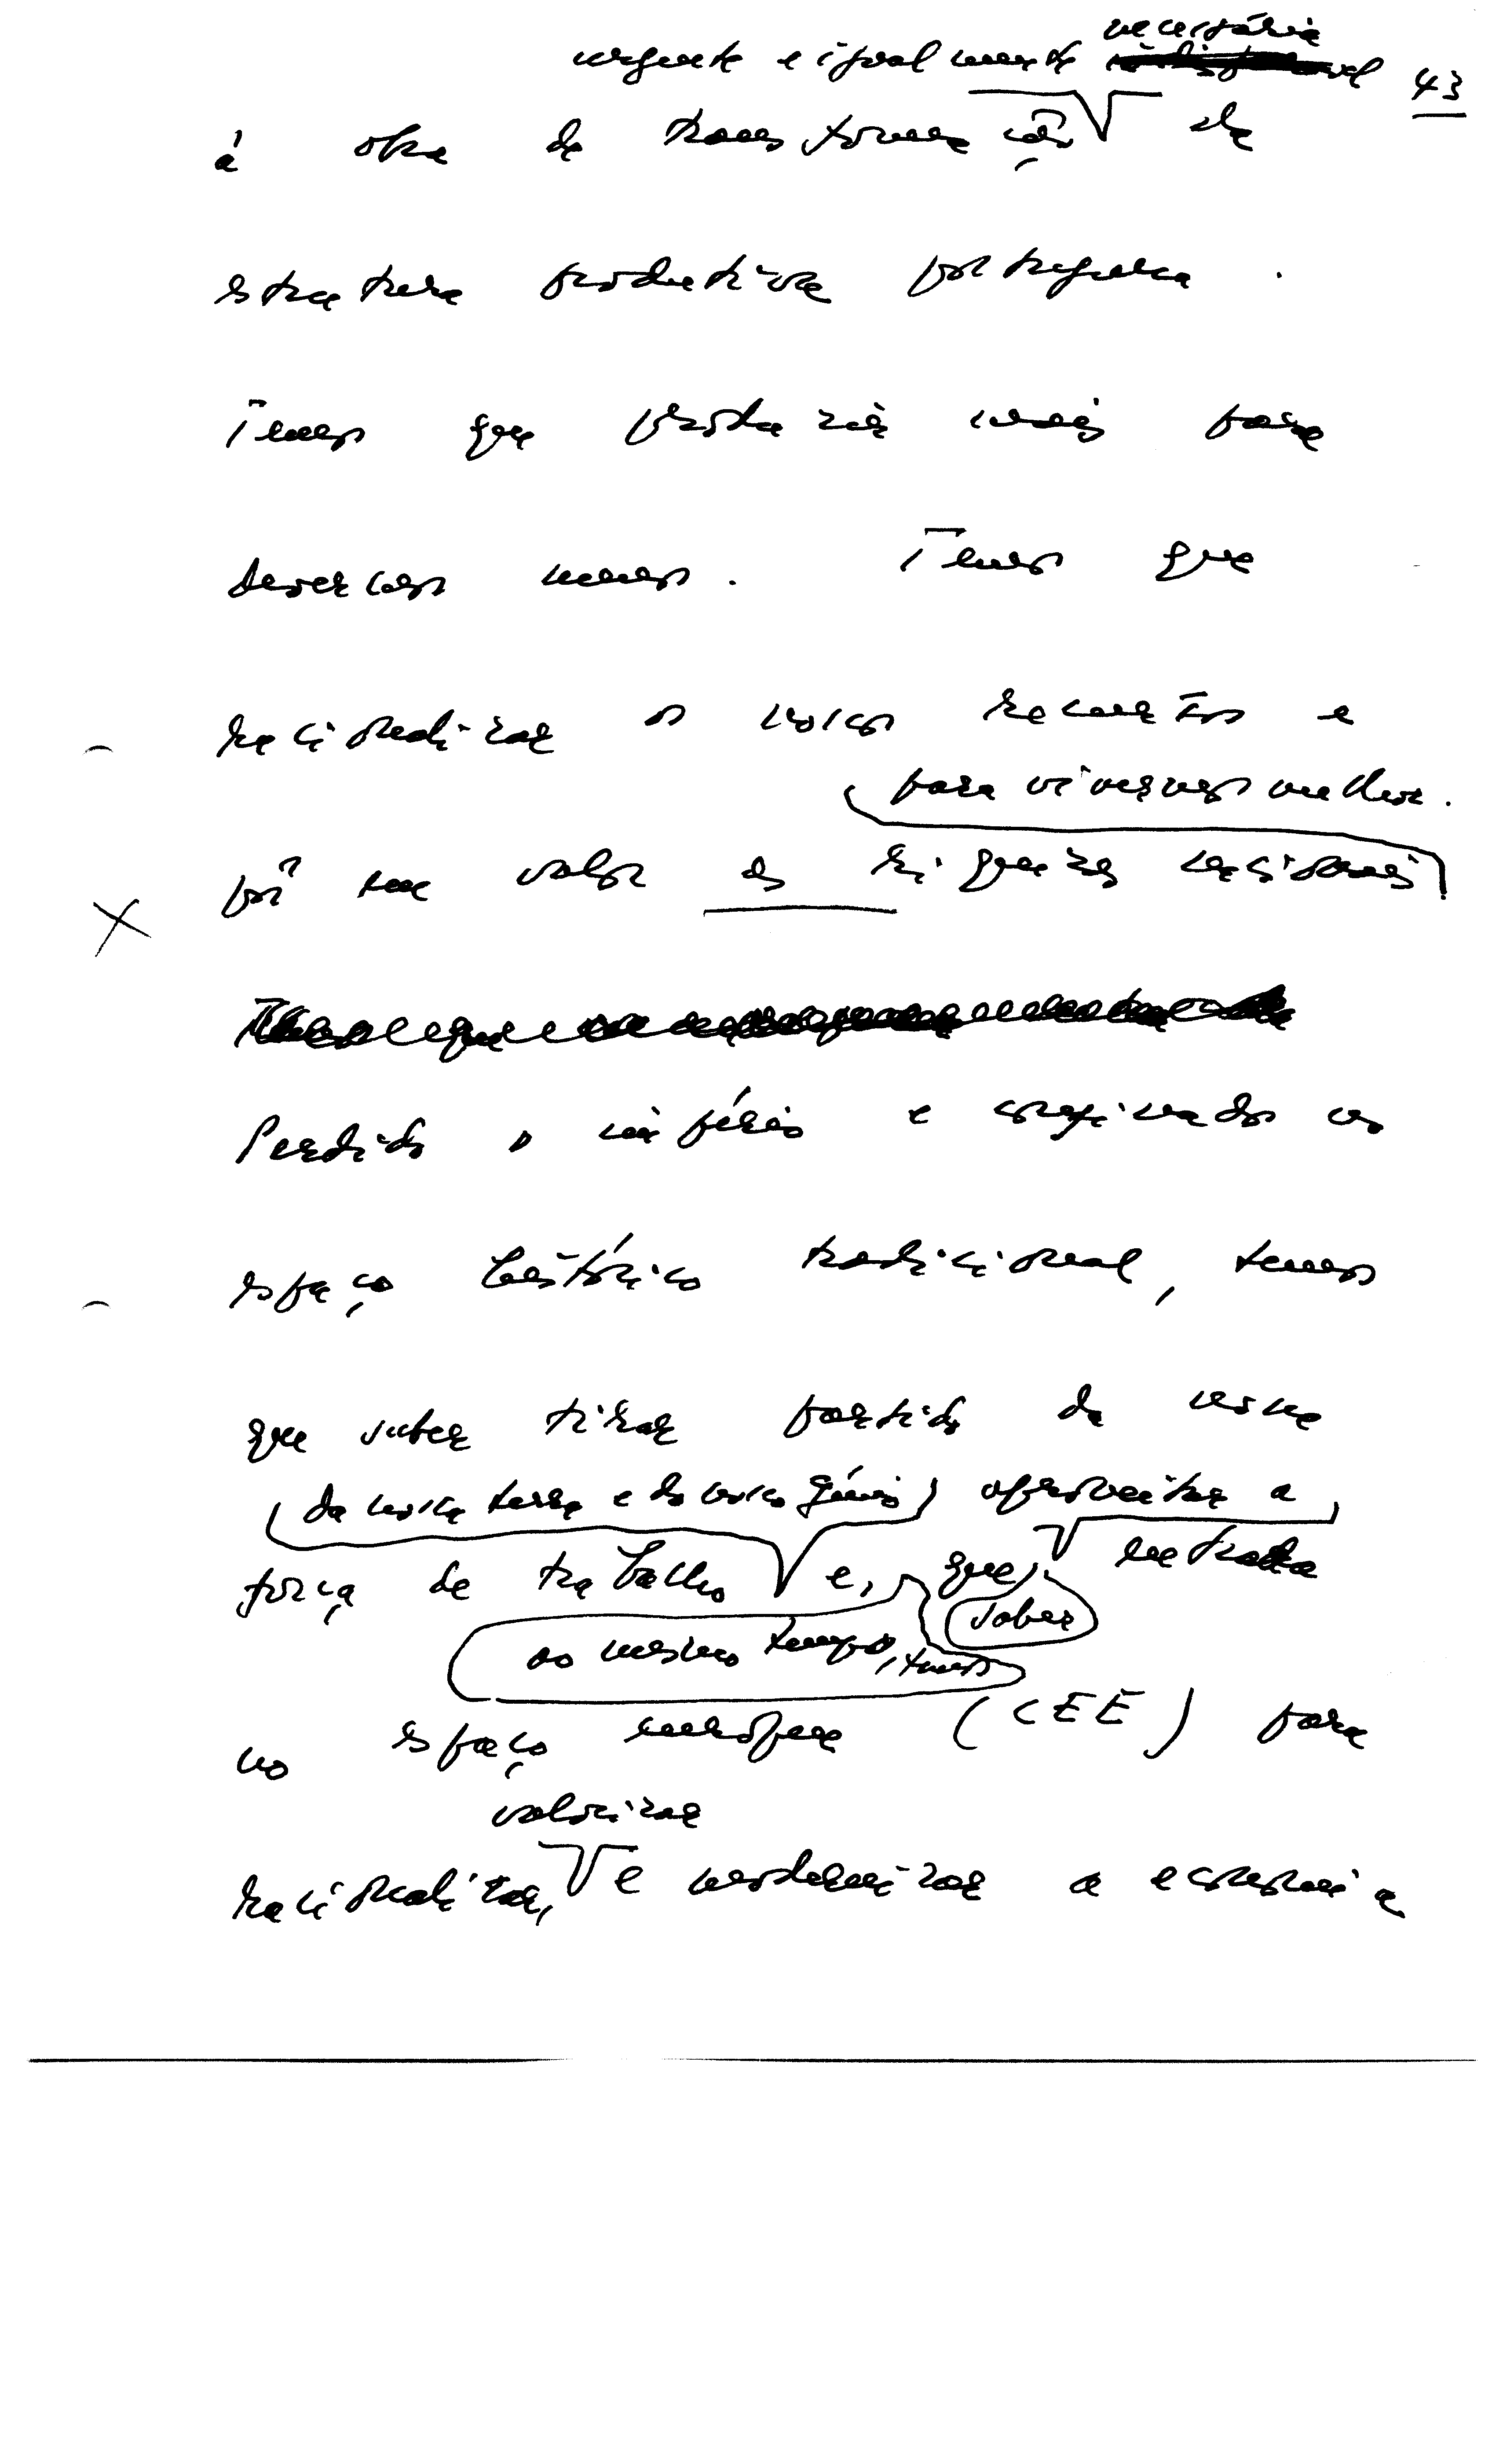 necessária
urgente e igualmente 43
à obra de transformação da
estrutura produtiva portuguesa.
Temos que produzir mais para
termos menos. Temos que
racionalizar os nossos recursos e
para vivermos melhor.
pôr em valor as riquezas nacionais
Perdido o império e confinados ao
espaço histórico tradicional, temos
que saber tirar partido da nossa
da nossa terra e do nosso génio, aproveitar a
força de trabalho e, que, entrada
saber
ao mesmo tempo, temos
no espaço europeu (CEE) para
valorizar
racionalizar, e modernizar a economia